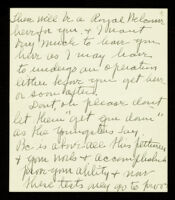 There will be a Royal Welcome
here for you & I want
very much to have you
here as I may have
to undergo an operation
either before you get here
or soon after.
Don't oh please don't
let them "get you down"
as the youngsters say.
be is above all this pettiness
& your work & accomplishments
prove your ability & now
these tests may go to prove